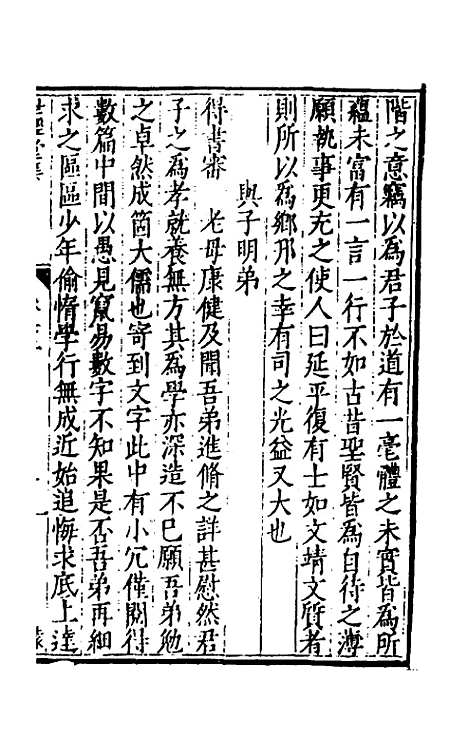 階之意竊以為君子於道有一毫體之未實皆為所
蘊未富有一言一行不如古昔聖賢皆為自待之薄
願執事更充之使人曰延平復有士如文靖文質者
則所以為鄉邦之幸有司之光益又大也
與子明弟
得書審 老母康健及聞吾弟進脩之詳甚慰然君
子之為孝就養無方其為學亦深造不已願吾弟勉
之卓然成箇大儒也寄到文字此中有小冗僅閱得
數篇中間以愚見竄易數字不知果是否吾弟再細
求之區區少年偷惰學行無成近始追悔求底上達